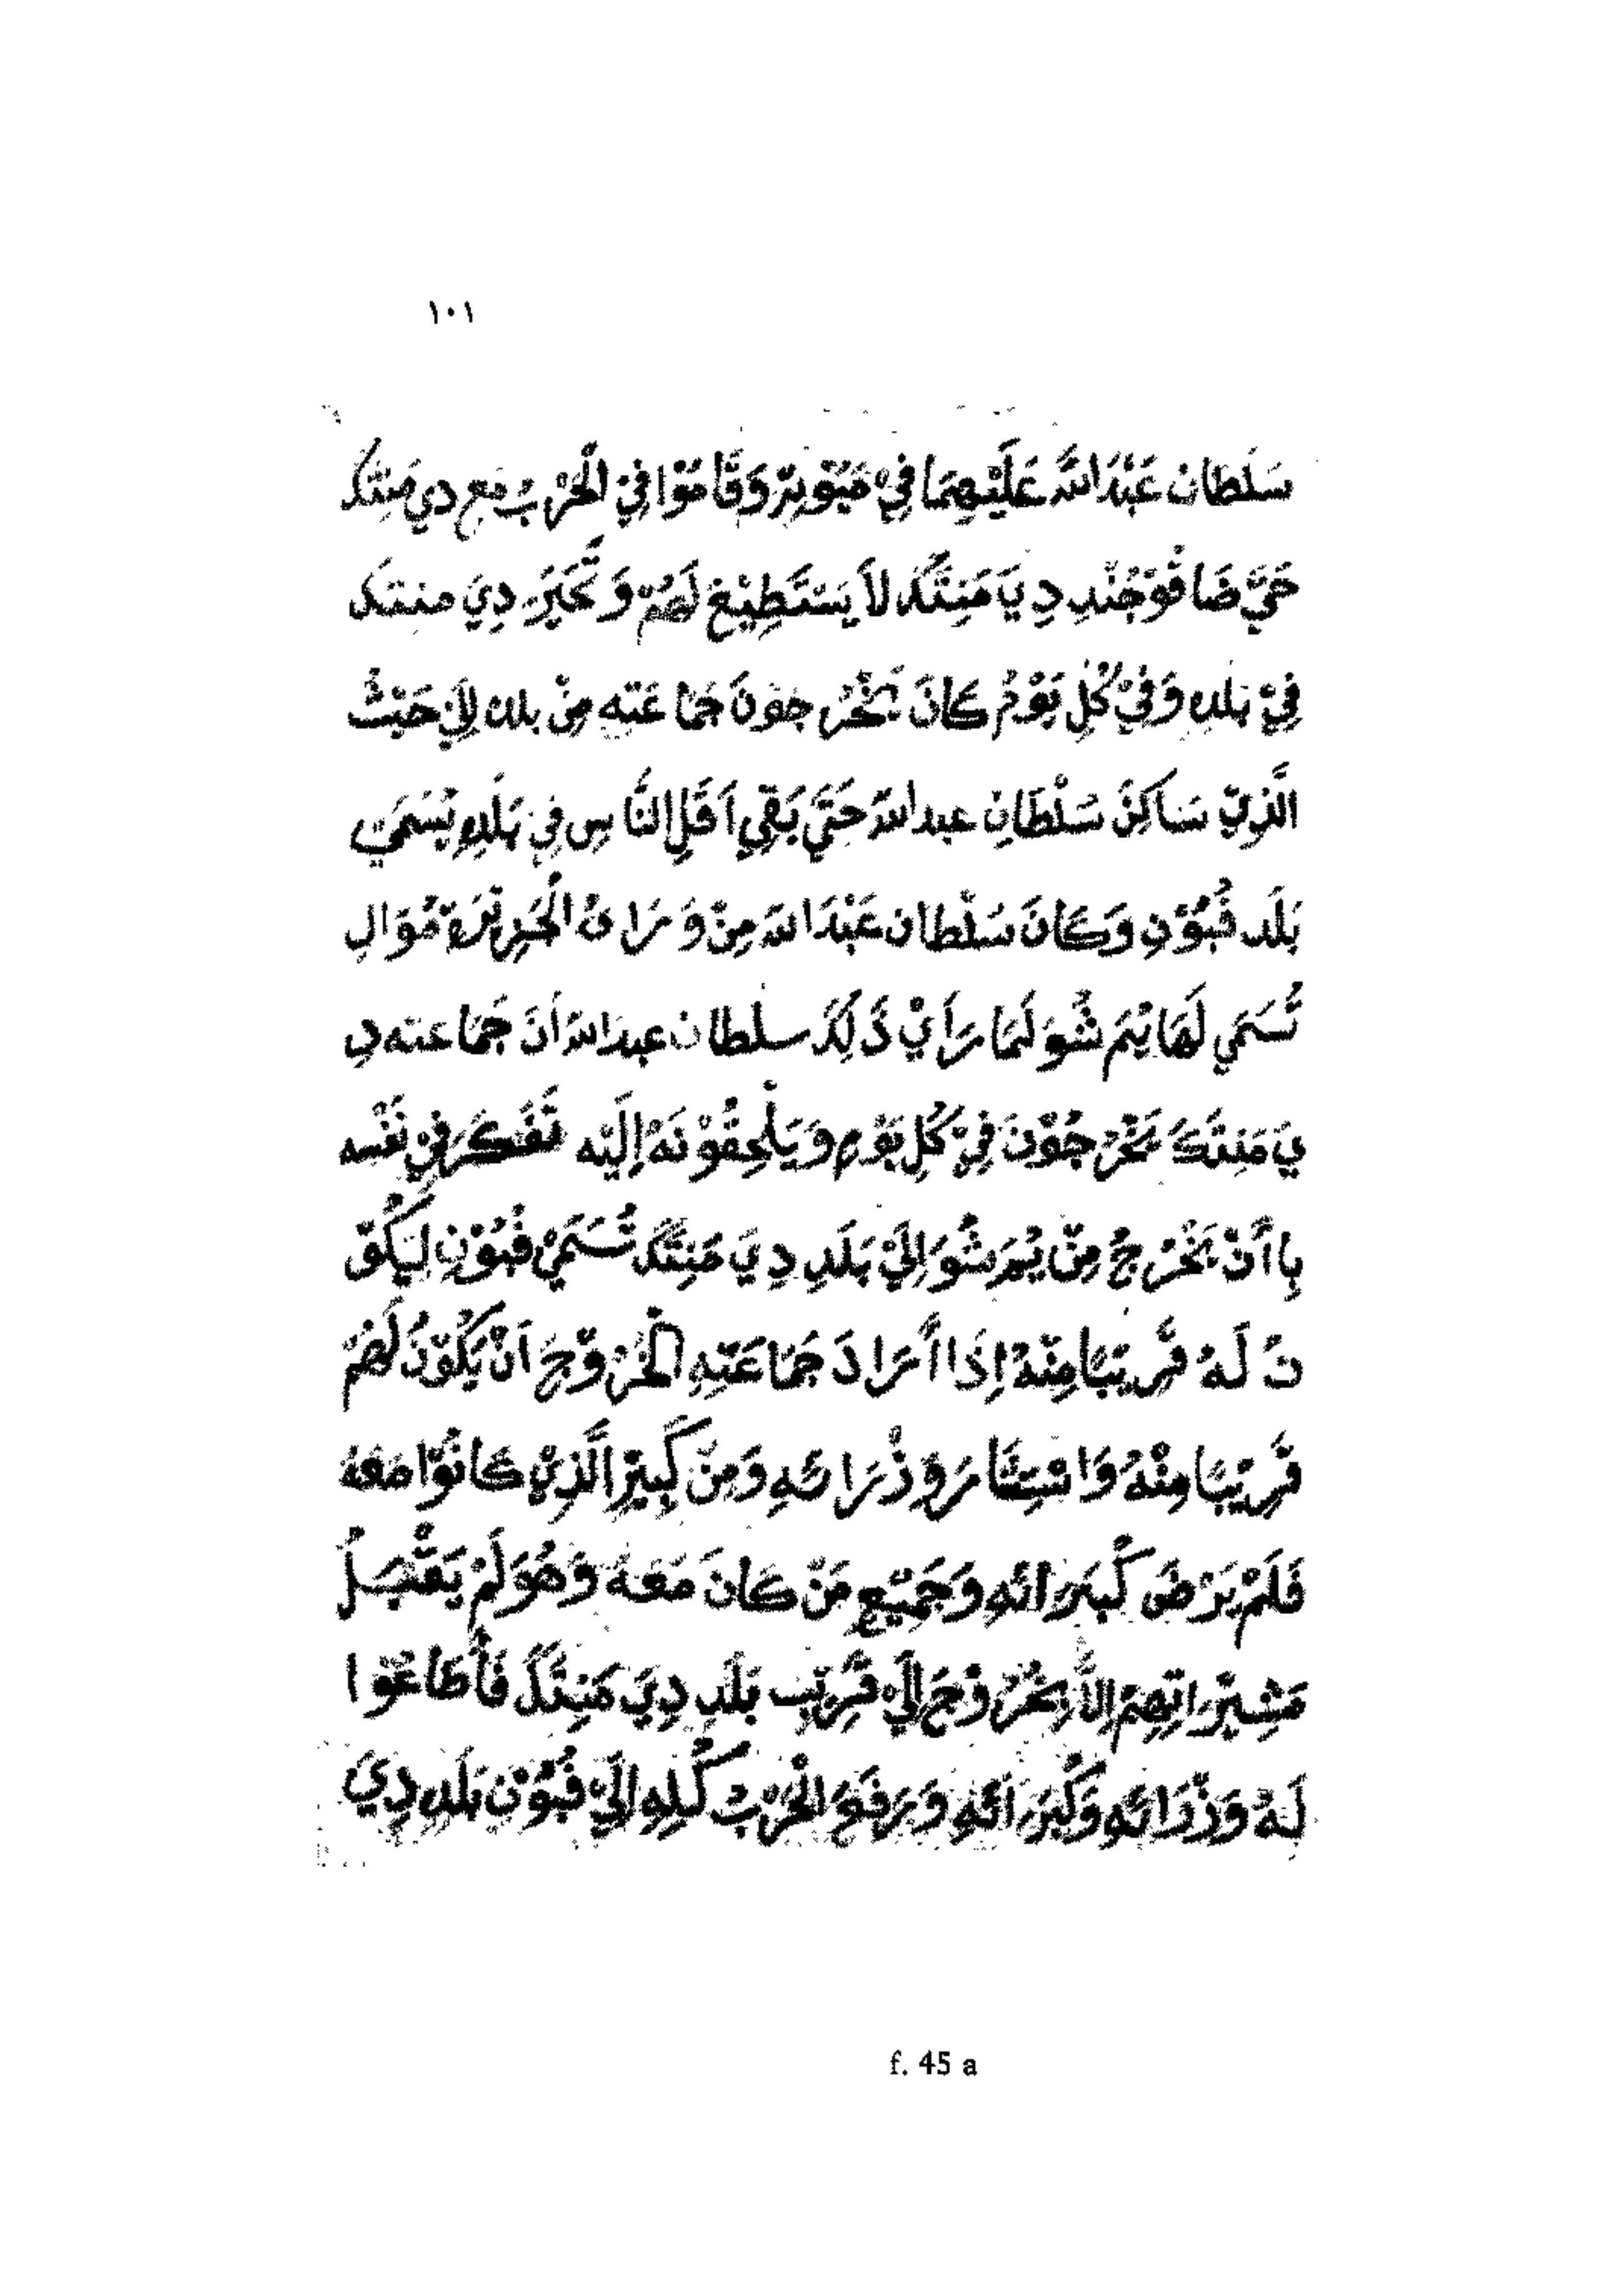 ١٠١
سَلَطان عَبْدَاللَّه عَلَيْهِمَا فِيْ مَبْوِيرْ وَقَامُوْا فِيْ الْحَرْبُ مع دي مَنِتَكَ
حَتَّيَ ضَافُوْ جُنْدِ دِ يَ مَنِتَكَ لاَ يَسْتَطِيْعْ لَهُمْ وَ تَّحَيَّرَ دِيَ منتكَ
فِيْ بَلَدِ وَفِيْ كُلِ يَوْمُ كَانَ يَخْرُجوْنَ جَمَا عَتِه مِنْ بلد إِلَيْ حَيْثُ
الَّذِيْ سَاكِنُ سَلْطَانِ عبدالله حَتَّيَ بَقِيِ اَقَلِ النَّاسِ فِي بَلَدِهِ يُسَمَيَ
بَلَد فُبُوْنِ وَكَانَ سَلْطان عَبْدَالله مِنْ وَ رَاءُ الْجَزِيْرَةِ مُوَالِ
تُسَمَي لَهَا يْمَ شُوَ لَمَا رَأَيْ ذَلِكَ سلطان عبدالله أَنَ جَمَاعته دِ
يَ مَنِتَكَ يَخْرُجُوْنَ فِيْ كُلِ يَوْمِ وَ يَلْحِقُوْنَهُ إِلَيْه تَفَكَرَ فِيْ نَفْسه
بِا أَنْ يَخْرُجُ مِنْ يْمَ شُوَ اِلَيْ بَلَدِ دِ يَ مَنِتَكَ تُسَمَيْ فُبُوْنِ لِيَكُوْ
نَ لَهُ قَرِيبًا مِنْهُ إِذَا أَرَادَ جَمَاعَتِهِ الْخُرُوْجَ اَنْ يَكُوْنُ لَهُمْ
قَرِيْبًا مِنْهُ وَ اسْتِشَارَ وِزْرَائِهِ وَمِنْ كَبِيْرِ الَّذِيْنَ كَانُوْا مَعَهُ
فَلَمْ يَرْضَ كُبَرَائِهِ وَجَمِيْعِ مَنْ كَانَ مَعَهُ وَهُوَ لَمْ يَقْبَلُ
مَشِيْرَاتِهِمْ اِلاَّ بِخُرُوْجَ اِلَيْ قَرِيْبِ بَلَدِ دِيَ مَنِتَكَ فَأَطَاعُوْا
لَهُ وَزْرَائِهِ وَكُبَرَائِهِ وَرَفَعَ الْحَرْبُ كُلِهِ اِلَيْ فُبُوْنِ بَلَدِ دِيَ
f. 45 a